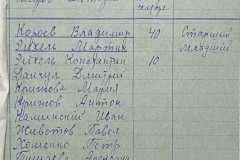 Колоев Владимир 40 Старший
Эйхель Мартин младший
Эйхель Константин 10
Фанчул Дмитрий
Крюкова Мария
Крюков Антон
Каменский Иван
Животов Павел
Хоменко Петр